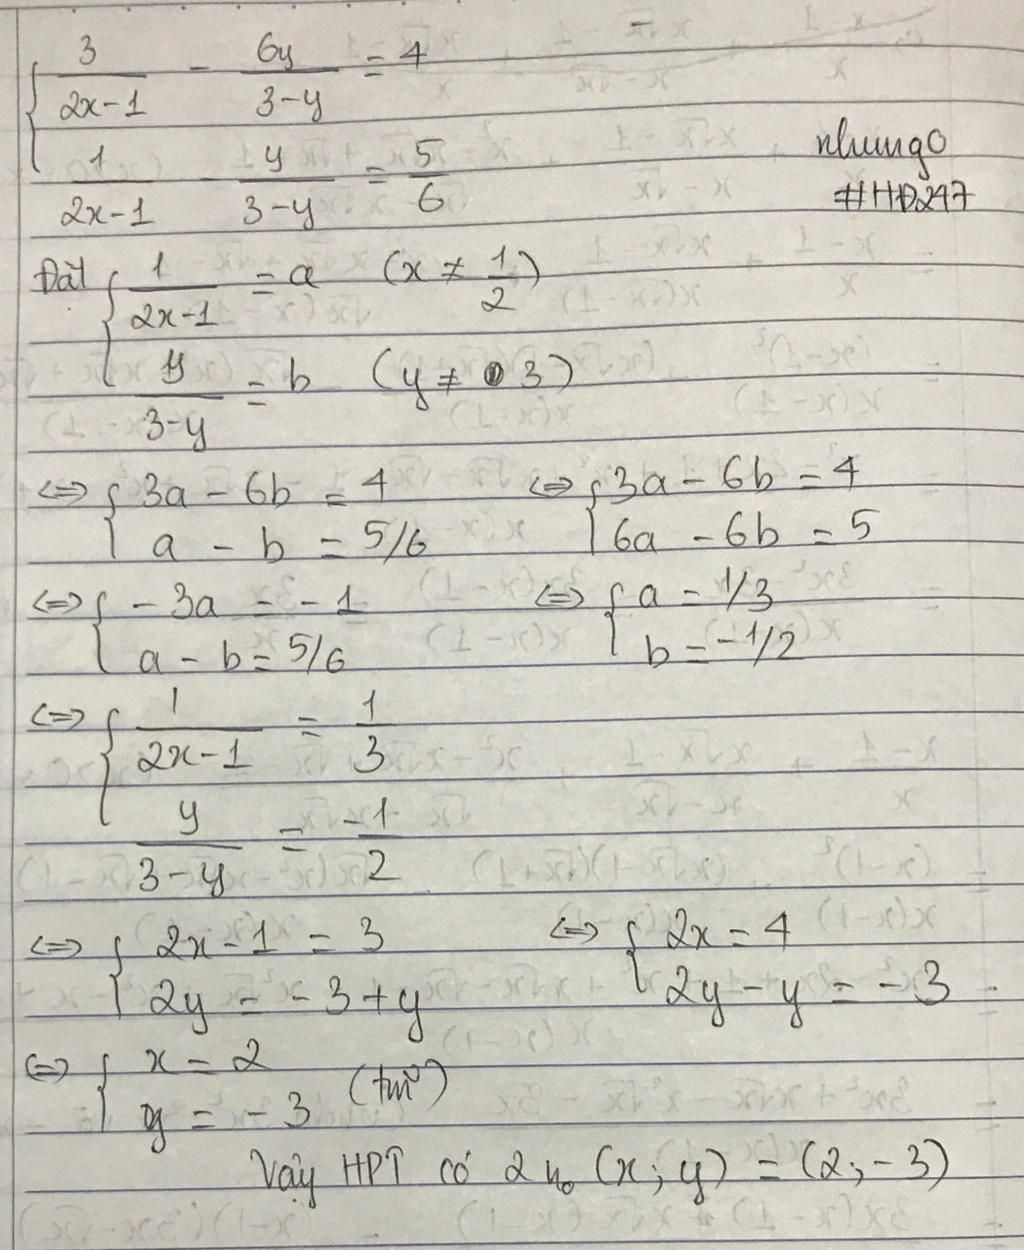 { 3/(2x-1) - 6y/(3-y) = 4
1/(2x-1) - y/(3-y) = 5/6
nhungo
#HĐ247
Đặt { 1/(2x-1) = a (x ≠ 1/2)
y/(3-y) = b (y ≠ 3)
⇔ { 3a - 6b = 4 ⇔ { 3a - 6b = 4
a - b = 5/6 6a - 6b = 5
⇔ { -3a = -1 ⇔ { a = 1/3
a - b = 5/6 b = -1/2
⇔ { 1/(2x-1) = 1/3
y/(3-y) = -1/2
⇔ { 2x-1 = 3 ⇔ { 2x = 4
2y = -3+y 2y-y = -3
⇔ { x = 2
y = -3 (tm)
Vậy HPT có 2 no (x; y) = (2; -3)